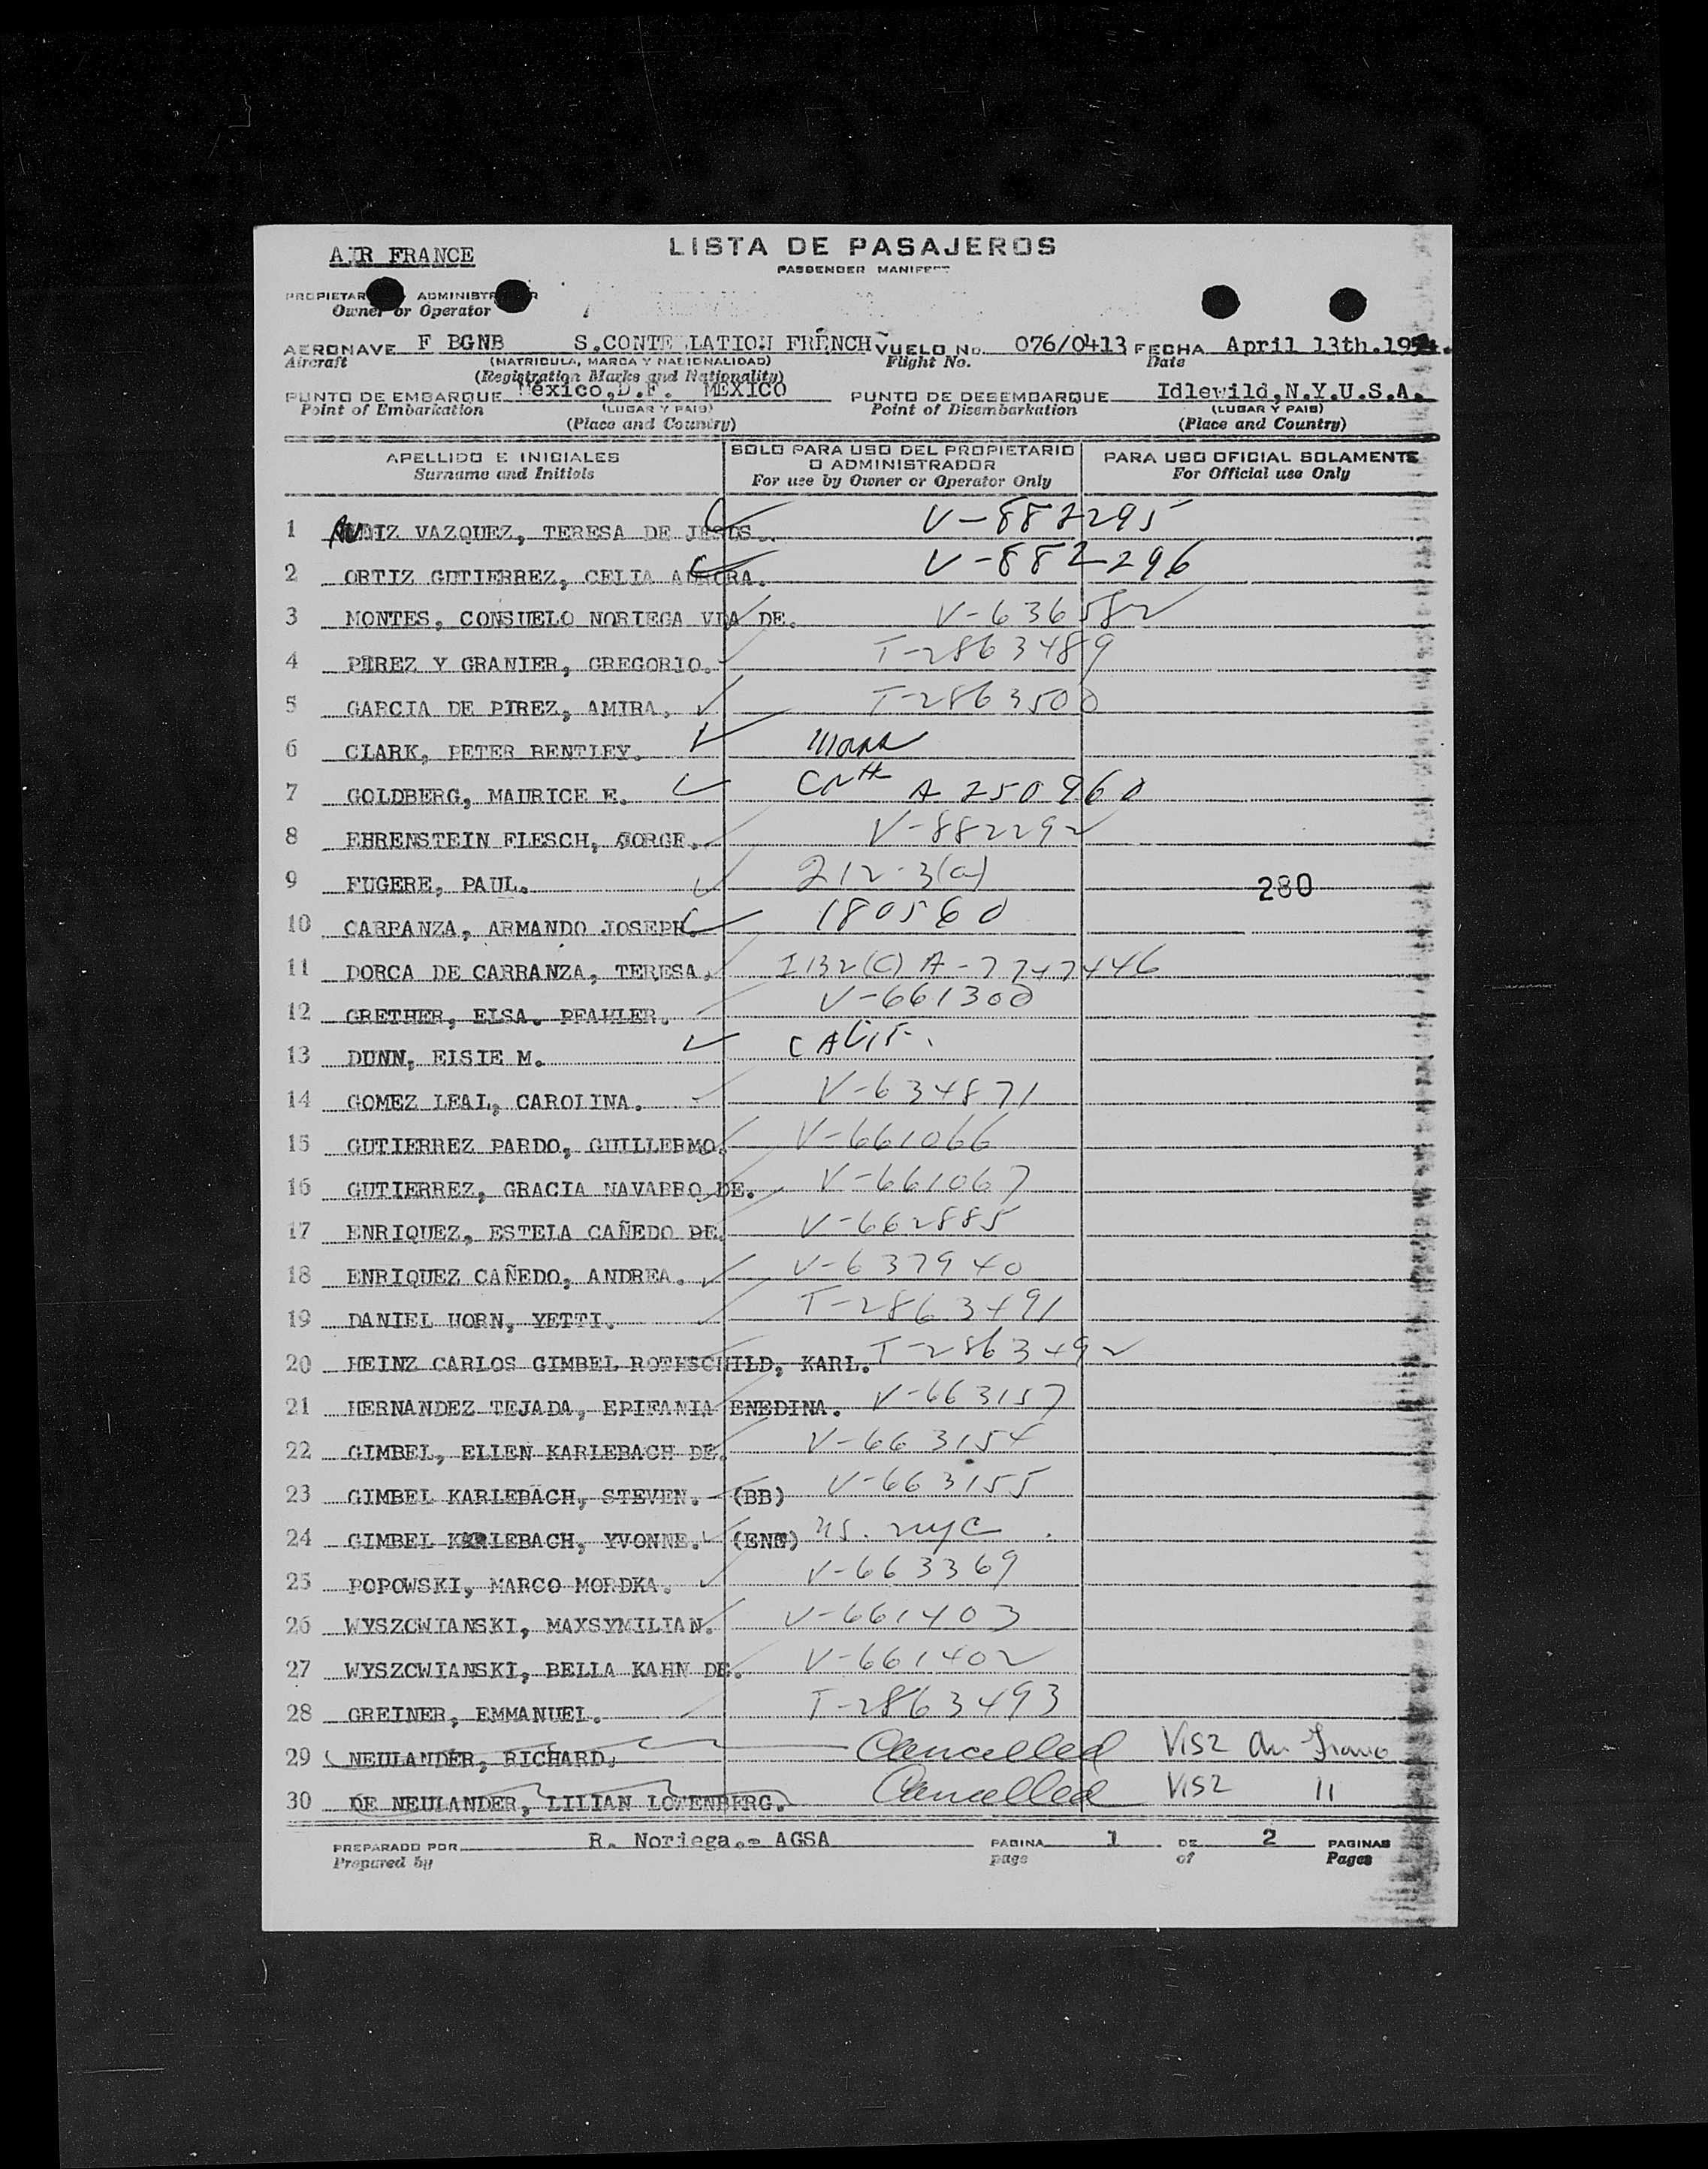 AIR FRANCE
LISTA DE PASAJEROS
PASSENGER MANIFEST
PROPIETAR ADMINISTR R
Owner or Operator
AERONAVE F BGNB S.CONTE LATION FRENCH VUELO No. 076/0413 FECHA April 13th.1954.
Aircraft (MATRICULA, MARCA Y NACIONALIDAD) Flight No. Date
(Registration Marks and Nationality)
PUNTO DE EMBARQUE México,D.F. MEXICO PUNTO DE DESEMBARQUE Idlewild,N.Y.U.S.A.
Point of Embarkation (LUGAR Y PAIS) Point of Disembarkation (LUGAR Y PAIS)
(Place and Country) (Place and Country)
APELLIDO E INICIALES SOLO PARA USO DEL PROPIETARIO O ADMINISTRADOR PARA USO OFICIAL SOLAMENTE
Surname and Initials For use by Owner or Operator Only For Official use Only
1 VAZQUEZ, TERESA DE JESUS. V-882295
2 ORTIZ GUTIERREZ, CELIA AURORA. V-882296
3 MONTES, CONSUELO NORIEGA VDA DE. V-636582
4 PEREZ Y GRANIER, GREGORIO. T-2863489
5 GARCIA DE PIREZ, AMIRA. T-2863500
6 CLARK, PETER BENTLEY.
7 GOLDBERG, MAURICE E. A 250960
8 EHRENSTEIN FLESCH, JORGE. V-882292
9 FUGERE, PAUL. 212-3(a) 280
10 CARRANZA, ARMANDO JOSEPH. 180560
11 DORCA DE CARRANZA, TERESA. I132(C) A-7747446
12 GRETHER, ELSA. PFAHLER. V-661300
13 DUNN, ELSIE M. CALIF.
14 GOMEZ LEAL, CAROLINA. V-634871
15 GUTIERREZ PARDO, GUILLERMO. V-661066
16 GUTIERREZ, GRACIA NAVARRO DE. V-661067
17 ENRIQUEZ, ESTELA CAÑEDO DE. V-662885
18 ENRIQUEZ CAÑEDO, ANDREA. V-637940
19 DANIEL HORN, YETTI. T-2863491
20 HEINZ CARLOS GIMBEL ROTHSCHILD, KARL. T-2863492
21 HERNANDEZ TEJADA, EPIFANIA ENEDINA. V-663157
22 GIMBEL, ELLEN KARLEBACH DE. V-663154
23 GIMBEL KARLEBACH, STEVEN. (BB) V-663155
24 GIMBEL KARLEBACH, YVONNE. (ENF) US. NYC
25 POPOWSKI, MARCO MORDKA. V-663369
26 WYSZOWIANSKI, MAXSYMILIAN. V-661403
27 WYSZCWIANSKI, BELLA KAHN DE. V-661402
28 GREINER, EMMANUEL. T-2863493
29 NEULANDER, RICHARD. Cancelled VISZ
30 DE NEULANDER, LILIAN LOWENBERG. Cancelled VISZ 11
PREPARADO POR R. Noriega.- AGSA PAGINA 1 DE 2 PAGINAS
Prepared by page of Pages